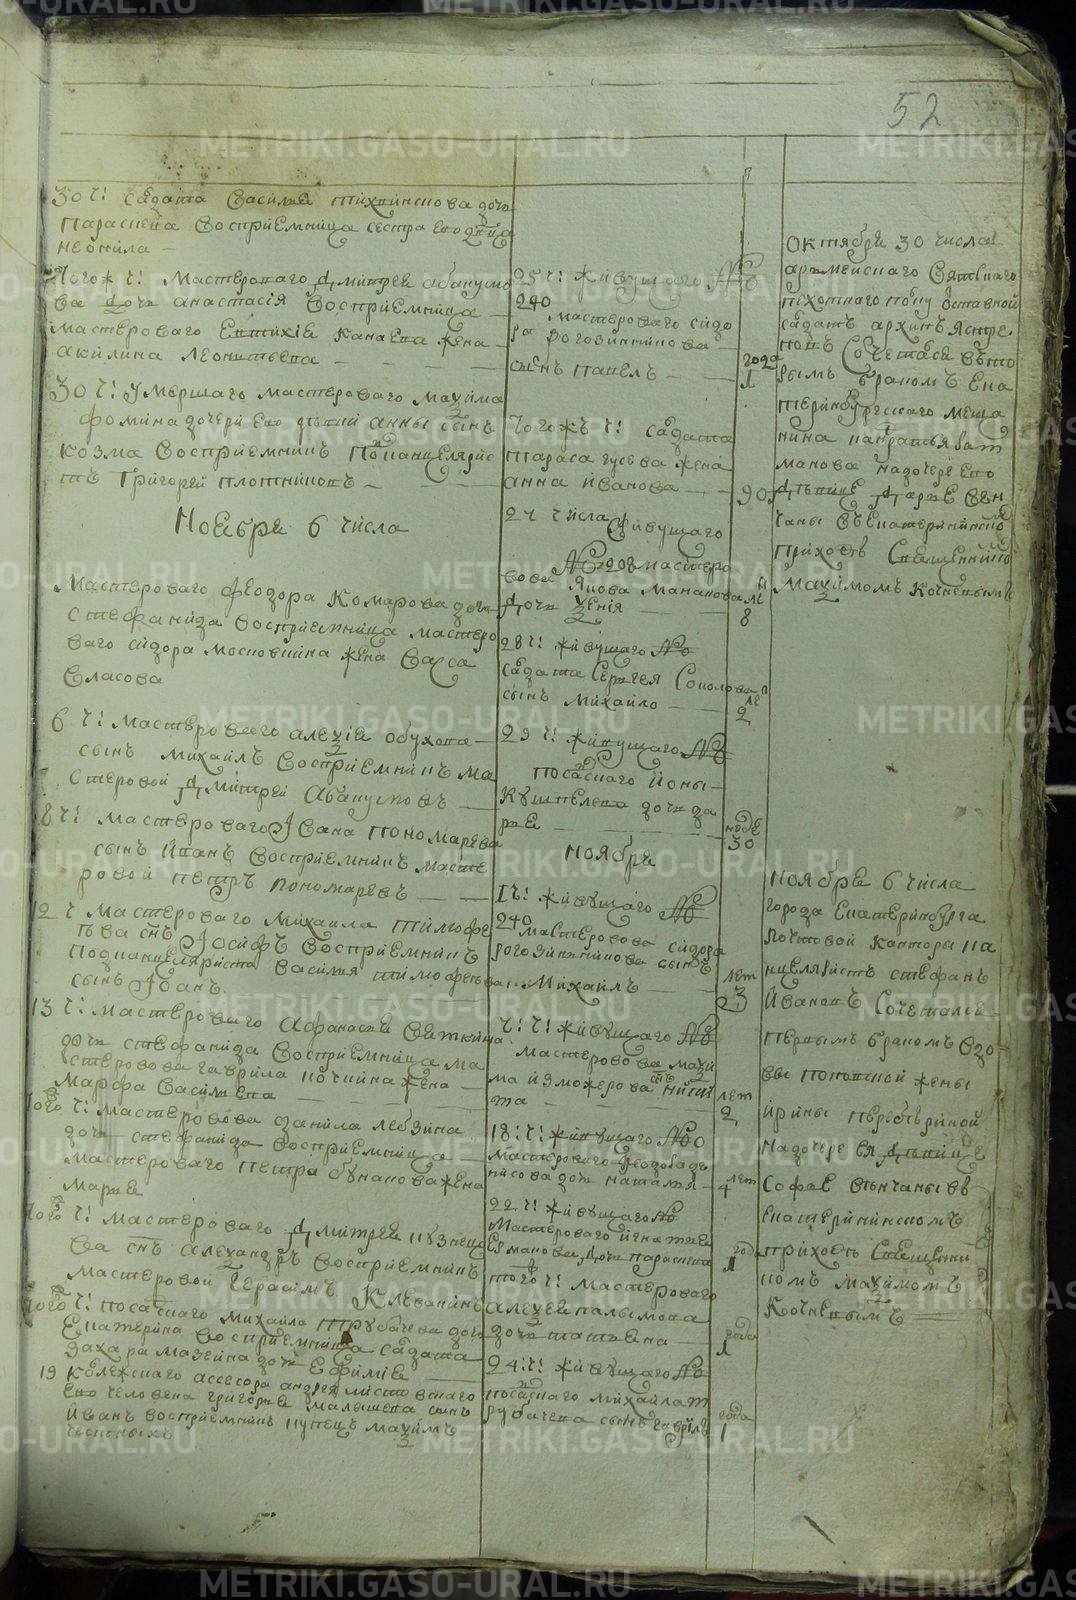 52
30 ч: салдата Василия
дочь
Парасковья восприемница сестра его девица
Неонила
Того ж ч: мастероваго Дмитрея Абакумо
ва дочь Анастасiя восприемница
мастероваго Евтихiе Канаева жена
Акилина Леонтьева
30 ч: умершаго мастероваго Маѯима
Фомина дочери его девки Анны сынъ
Козма восприемникъ подканцелярис
тъ Григорей Плотниковъ
Ноебря 6 числа
мастероваго Феодора Комарова дочь
Стефанида восприемница мастеро
ваго Сидора Московкина жена Васса
Власова
6 ч: мастероваго Алеѯiе Обухова
сынъ Михаилъ восприемникъ ма
стеровой Дмитрей Абакумовъ
8 ч: мастероваго Iвана Пономарева
сынъ Иванъ восприемникъ масте
ровой Петръ Пономаревъ
12 ч мастероваго Михаила Тимофе
ева снъ Iосифъ восприемникъ
подканцеляриста Василия Тимофеева
сынъ Iоанъ
13 ч: мастероваго Афанасье Веткина
дочь Стефанида восприемница ма
стеровова Гаврила
жена
Марфа Васильева
Того ч: мастеровова Данила Лебзина
дочь Стефанида восприемница
мастероваго Петра Буланова жена
Марье
Того ч: мастероваго Дмитрея Кузнецо
ва снъ Алеѯандръ восприемникъ
мастеровой Герасимъ Клевакинъ
Того ч: посацкаго Михаила Трубачева дочь
Екатерина восприемница салдата
Захара Мазеина дочь Ефимiе
19 колежскаго ассесора Андрея
его человека Григорье Малышева сынъ
Иванъ восприемникъ купецъ Маѯимъ
25 ч: живущаго №
240
мастероваго Сидо
ра Рогозинникова
сынъ Павелъ
года
1
Тогожъ ч: салдата
Тараса Гусева жена
Анна Иванова
90
27 числа живущаго
№ 208 мастеро
вова Якова Манакова
дочь Ѯенiя
8
28 ч: живущаго №
салдата Сергея Соколова
сынъ Михайло
2
29 ч: живущаго №
посацкаго Ионы
Кушнелева дочь Да
рье
30
Ноябре
1 ч: живущаго №
240 мастеровова Сидора
Рогозинникова сынъ
Михаилъ
лет
3
ч: живущаго №
мастеровова Маѯи
ма Изможерова снъ Никит
та
лет
2
18: ч: живущаго №
мастероваго Феодора
дочь Наталя
лет
4
22 ч: живущаго №
мастероваго Игнатие
Ермакова дочь Парасковья
года
1
того ч: мастероваго
Алеѯея Палымова
дочь Татиена
года
1
24: ч: живущаго №
посацкаго Михаила Т
рубачева сынъ Гаврiлъ
года
1
Октября 30 числа
армейскаго Вятскаго
пехотнаго полку отставной
салдатъ Архипъ Ястре
бовъ сочетался вто
рымъ бракомъ Ека
теринбургскаго меща
нина Панкратья Ват
манова на дочере его
девкице Дарье вен
чаны в Екатерининско
приходе священнико
Маѯимомъ Кочневымъ
Ноябре 6 числа
города Екатеринбурга
почтовой канторы ка
нцеляристъ Стефанъ
Ивановъ сочетался
первымъ бракомъ вдо
вы
жены
Ирины
на дочере ея девкице
Софье венчаны въ
Екатерининскомъ
приходе священни
комъ Маѯимомъ
Кочневымъ